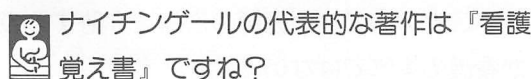 ナイチンゲールの代表的な著作は『看護
覚え書』ですね？